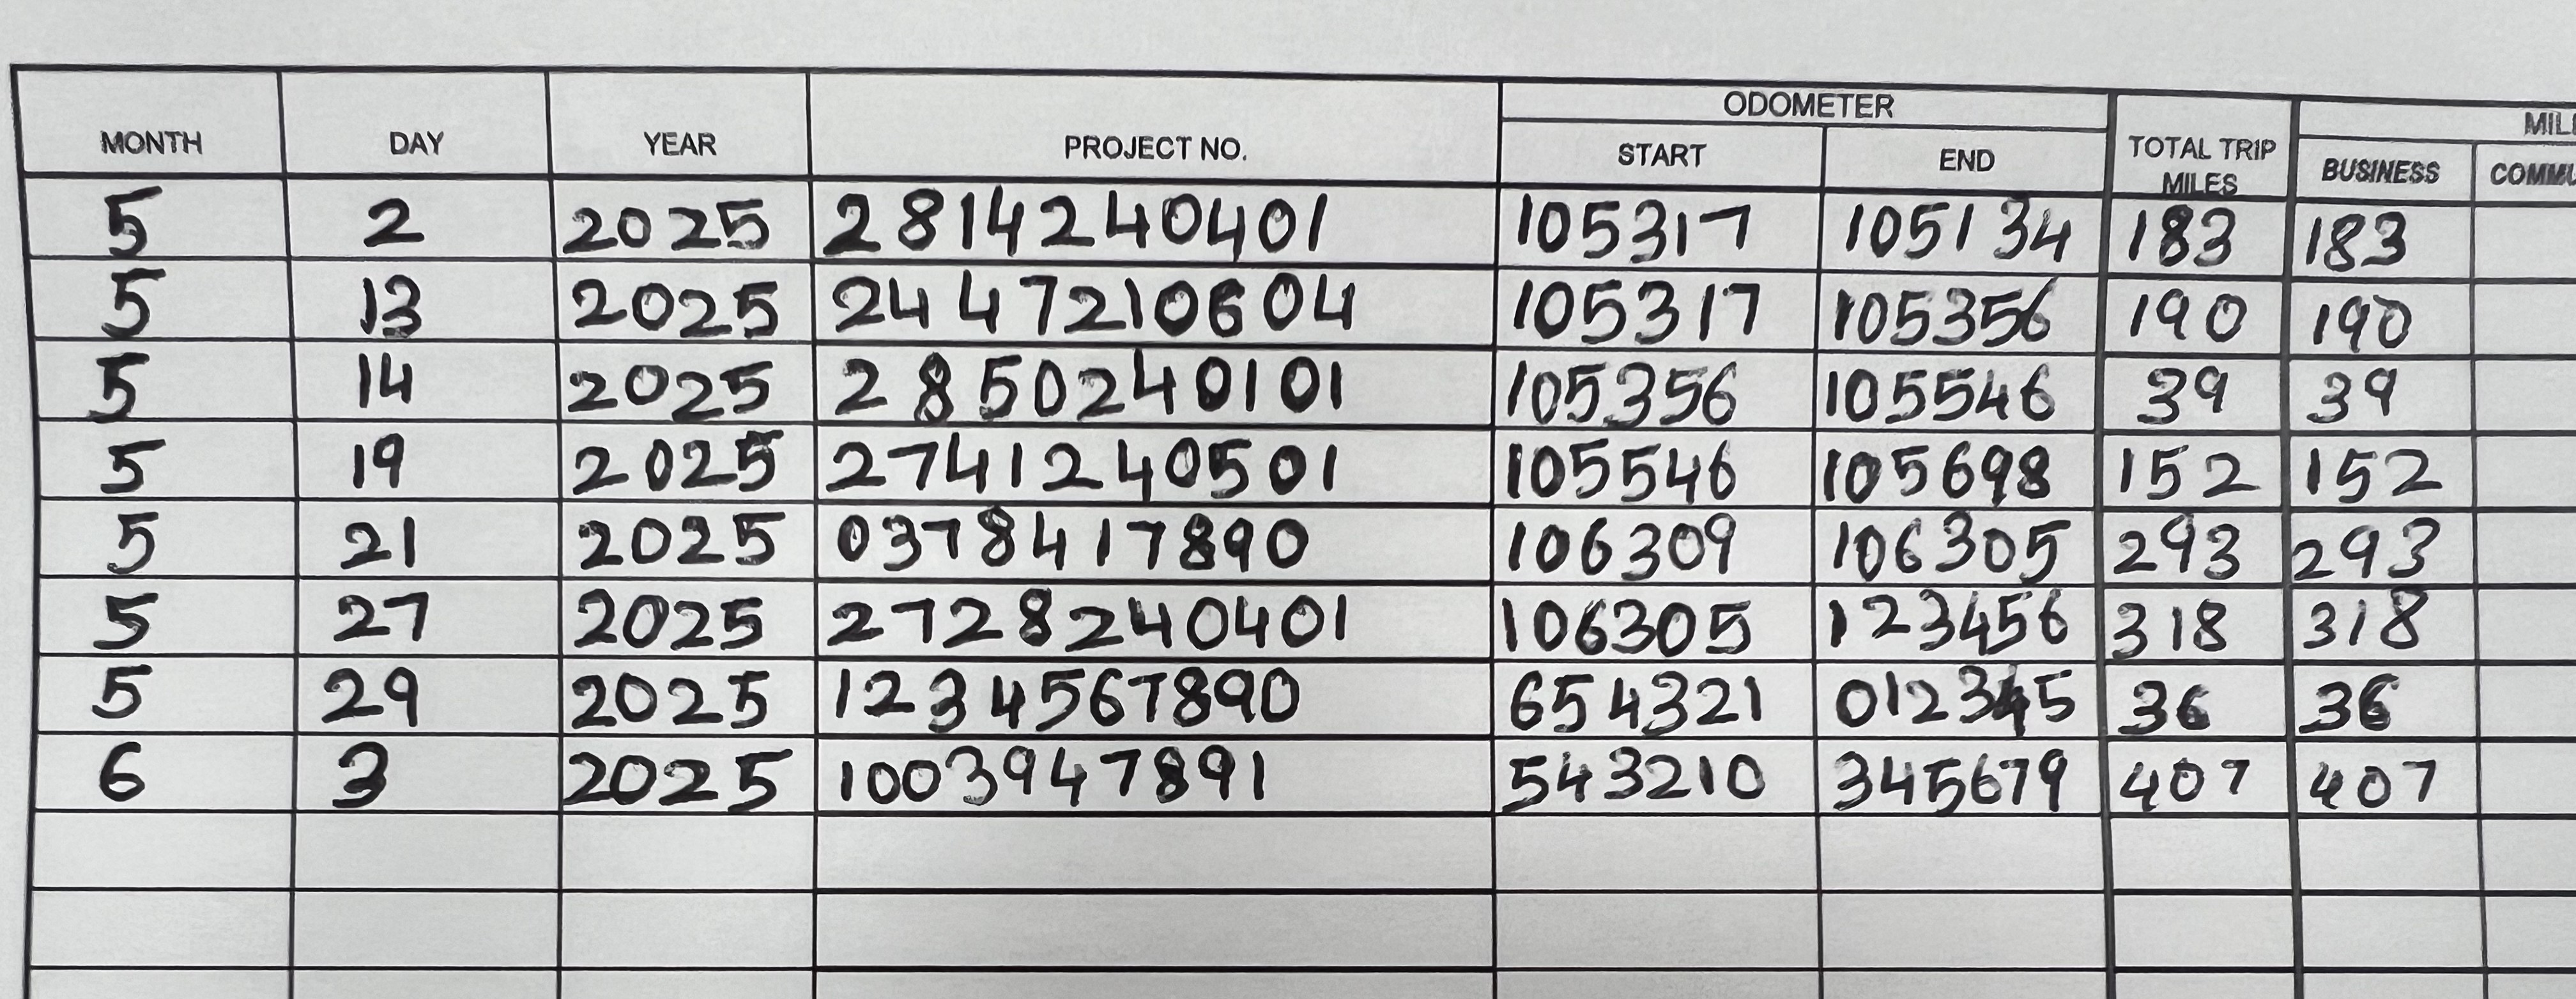 ODOMETER MIL
MONTH DAY YEAR PROJECT NO. START END TOTAL TRIP MILES BUSINESS COMMU
5 2 2025 2814240401 105317 105134 183 183
5 13 2025 2447210604 105317 105356 190 190
5 14 2025 2850240101 105356 105546 39 39
5 19 2025 2741240501 105546 105698 152 152
5 21 2025 0378417890 106309 106305 293 293
5 27 2025 2728240401 106305 123456 318 318
5 29 2025 1234567890 654321 012345 36 36
6 3 2025 1003947891 543210 345679 407 407